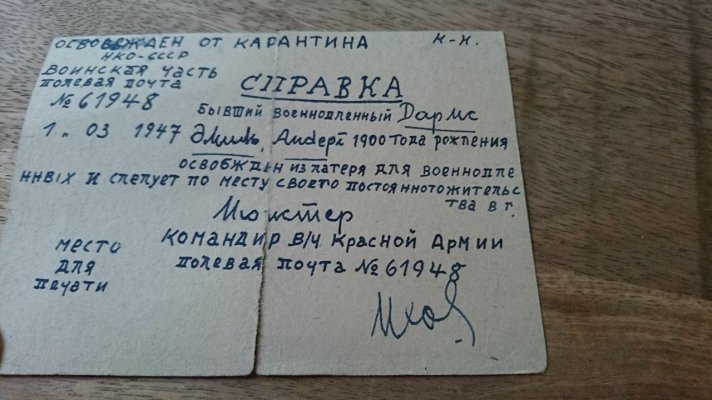 ОСВОБОЖДЕН ОТ КАРАНТИНА К-Н.
НКО-СССР
ВОИНСКАЯ ЧАСТЬ
ПОЛЕВАЯ ПОЧТА
№ 61948
СПРАВКА
БЫВШИЙ ВОЕННОПЛЕННЫЙ Дармс
1 03 1947 Эмиль, 1900 ГОДА РОЖДЕНИЯ
ОСВОБЖДЕН ИЗ ЛАГЕРЯ ДЛЯ ВОЕННОПЛЕ
ННЫХ И СЛЕДУЕТ ПО МЕСТУ СВОЕГО ПОСТОЯННОГО ЖИТЕЛЬС
ТВА В Г.
Мюнстер
КОМАНДИР В/Ч КРАСНОЙ АРМИИ
ПОЛЕВАЯ ПОЧТА № 61948
МЕСТО
ДЛЯ
ПЕЧАТИ